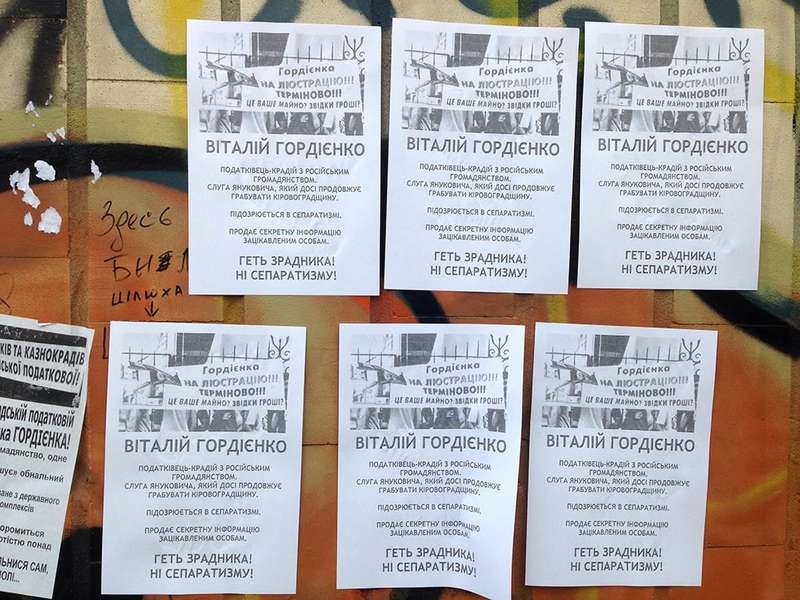 Гордієнка
НА ЛЮСТРАЦІЮ!!!
ТЕРМІНОВО!!!
ЦЕ ВАШЕ МАЙНО? ЗВІДКИ ГРОШІ?
ВІТАЛІЙ ГОРДІЄНКО
ПОДАТКІВЕЦЬ-КРАДІЙ З РОСІЙСЬКИМ
ГРОМАДЯНСТВОМ.
СЛУГА ЯНУКОВИЧА, ЯКИЙ ДОСІ ПРОДОВЖУЄ
ГРАБУВАТИ КІРОВОГРАДЩИНУ.
ПІДОЗРЮЄТЬСЯ В СЕПАРАТИЗМІ.
ПРОДАЄ СЕКРЕТНУ ІНФОРМАЦІЮ
ЗАЦІКАВЛЕНИМ ОСОБАМ.
ГЕТЬ ЗРАДНИКА!
НІ СЕПАРАТИЗМУ!
Гордієнка
НА ЛЮСТРАЦІЮ!!!
ТЕРМІНОВО!!!
ЦЕ ВАШЕ МАЙНО? ЗВІДКИ ГРОШІ?
ВІТАЛІЙ ГОРДІЄНКО
ПОДАТКІВЕЦЬ-КРАДІЙ З РОСІЙСЬКИМ
ГРОМАДЯНСТВОМ.
СЛУГА ЯНУКОВИЧА, ЯКИЙ ДОСІ ПРОДОВЖУЄ
ГРАБУВАТИ КІРОВОГРАДЩИНУ.
ПІДОЗРЮЄТЬСЯ В СЕПАРАТИЗМІ.
ПРОДАЄ СЕКРЕТНУ ІНФОРМАЦІЮ
ЗАЦІКАВЛЕНИМ ОСОБАМ.
ГЕТЬ ЗРАДНИКА!
НІ СЕПАРАТИЗМУ!
Гордієнка
НА ЛЮСТРАЦІЮ!!!
ТЕРМІНОВО!!!
ЦЕ ВАШЕ МАЙНО? ЗВІДКИ ГРОШІ?
ВІТАЛІЙ ГОРДІЄНКО
ПОДАТКІВЕЦЬ-КРАДІЙ З РОСІЙСЬКИМ
ГРОМАДЯНСТВОМ.
СЛУГА ЯНУКОВИЧА, ЯКИЙ ДОСІ ПРОДОВЖУЄ
ГРАБУВАТИ КІРОВОГРАДЩИНУ.
ПІДОЗРЮЄТЬСЯ В СЕПАРАТИЗМІ.
ПРОДАЄ СЕКРЕТНУ ІНФОРМАЦІЮ
ЗАЦІКАВЛЕНИМ ОСОБАМ.
ГЕТЬ ЗРАДНИКА!
НІ СЕПАРАТИЗМУ!
Здесь
КІВ ТА КАЗНОКРАДІВ
ської податкової!
дській податковій
ка ГОРДІЄНКА!
мадянство, одне
шує» обнальний
ане з державного
омплексів
оромиться
тістю понад
ЛЬНИСЯ САМ,
Гордієнка
НА ЛЮСТРАЦІЮ!!!
ТЕРМІНОВО!!!
ЦЕ ВАШЕ МАЙНО? ЗВІДКИ ГРОШІ?
ВІТАЛІЙ ГОРДІЄНКО
ПОДАТКІВЕЦЬ-КРАДІЙ З РОСІЙСЬКИМ
ГРОМАДЯНСТВОМ.
СЛУГА ЯНУКОВИЧА, ЯКИЙ ДОСІ ПРОДОВЖУЄ
ГРАБУВАТИ КІРОВОГРАДЩИНУ.
ПІДОЗРЮЄТЬСЯ В СЕПАРАТИЗМІ.
ПРОДАЄ СЕКРЕТНУ ІНФОРМАЦІЮ
ЗАЦІКАВЛЕНИМ ОСОБАМ.
ГЕТЬ ЗРАДНИКА!
НІ СЕПАРАТИЗМУ!
Гордієнка
НА ЛЮСТРАЦІЮ!!!
ТЕРМІНОВО!!!
ЦЕ ВАШЕ МАЙНО? ЗВІДКИ ГРОШІ?
ВІТАЛІЙ ГОРДІЄНКО
ПОДАТКІВЕЦЬ-КРАДІЙ З РОСІЙСЬКИМ
ГРОМАДЯНСТВОМ.
СЛУГА ЯНУКОВИЧА, ЯКИЙ ДОСІ ПРОДОВЖУЄ
ГРАБУВАТИ КІРОВОГРАДЩИНУ.
ПІДОЗРЮЄТЬСЯ В СЕПАРАТИЗМІ.
ПРОДАЄ СЕКРЕТНУ ІНФОРМАЦІЮ
ЗАЦІКАВЛЕНИМ ОСОБАМ.
ГЕТЬ ЗРАДНИКА!
НІ СЕПАРАТИЗМУ!
Гордієнка
НА ЛЮСТРАЦІЮ!!!
ТЕРМІНОВО!!!
ЦЕ ВАШЕ МАЙНО? ЗВІДКИ ГРОШІ?
ВІТАЛІЙ ГОРДІЄНКО
ПОДАТКІВЕЦЬ-КРАДІЙ З РОСІЙСЬКИМ
ГРОМАДЯНСТВОМ.
СЛУГА ЯНУКОВИЧА, ЯКИЙ ДОСІ ПРОДОВЖУЄ
ГРАБУВАТИ КІРОВОГРАДЩИНУ.
ПІДОЗРЮЄТЬСЯ В СЕПАРАТИЗМІ.
ПРОДАЄ СЕКРЕТНУ ІНФОРМАЦІЮ
ЗАЦІКАВЛЕНИМ ОСОБАМ.
ГЕТЬ ЗРАДНИКА!
НІ СЕПАРАТИЗМУ!